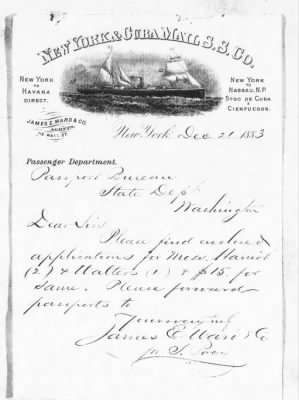 NEW YORK & CUBA MAIL S.S. CO.
NEW YORK
TO
HAVANA
DIRECT.
NEW YORK
TO
NASSAU, N.P.
STGO DE CUBA
& CIENFUEGOS.
JAMES E. WARD & CO.
AGENTS,
113 WALL ST.
New York Dec 21 1883
Passenger Department.
Passport Bureau
State Dept
Washington
Dear Sirs
Please find enclosed
applications for Mess.
(2) & Walters (1) & $15 for
same. Please forward
passports to
Yours truly
James E Ward & Co